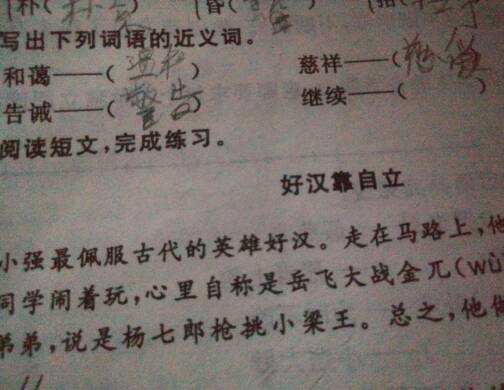 朴( 朴
昏(
写出下列词语的近义词。
和蔼——(温和) 慈祥——(慈爱)
告诫——(警告) 继续——( )
阅读短文,完成练习。
好汉靠自立
小强最佩服古代的英雄好汉。走在马路上,他
同学闹着玩,心里自称是岳飞大战金兀(wù
弟弟,说是杨七郎枪挑小梁王。总之,他